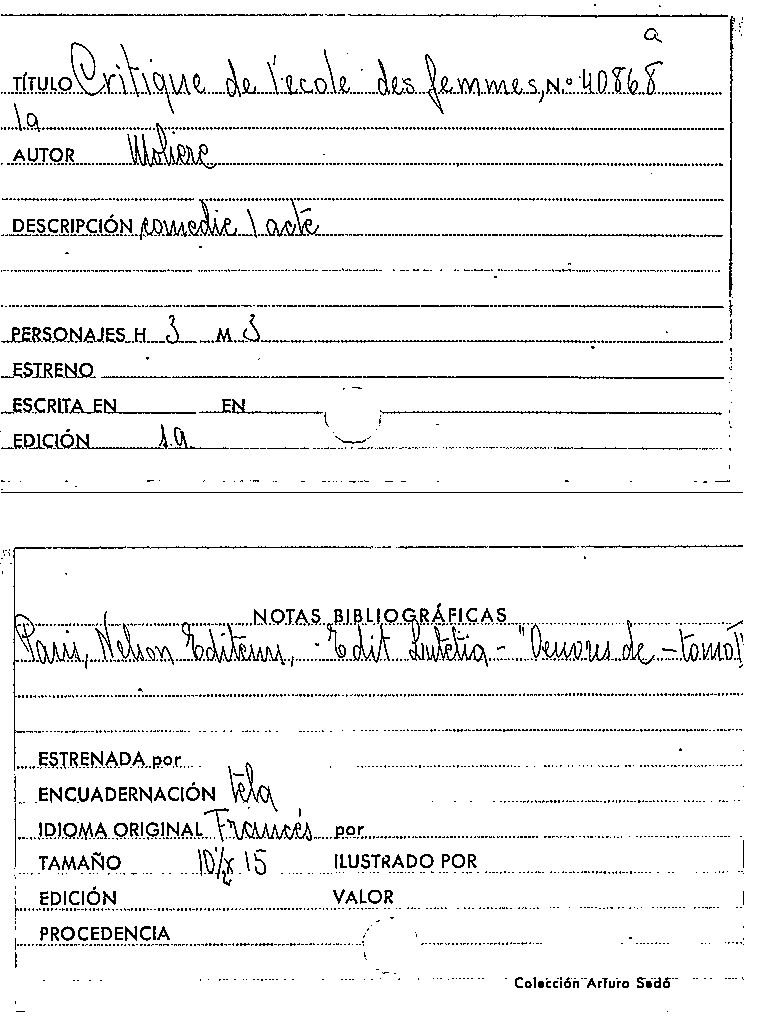 a
TÍTULO Critique de l'ecole des femmes, N.º 40868
la
AUTOR Moliere
DESCRIPCIÓN comedie 1 acte
PERSONAJES H 3 M 3
ESTRENO
ESCRITA EN EN
EDICIÓN 1a
NOTAS BIBLIOGRÁFICAS
Paris, Nelson Editeurs, Edit Lutetia - "Oeuvres de - tomo I"
ESTRENADA por
ENCUADERNACIÓN tela
IDIOMA ORIGINAL Francés por
TAMAÑO 10½ x 15 ILUSTRADO POR
EDICIÓN VALOR
PROCEDENCIA
Colección Arturo Sedó